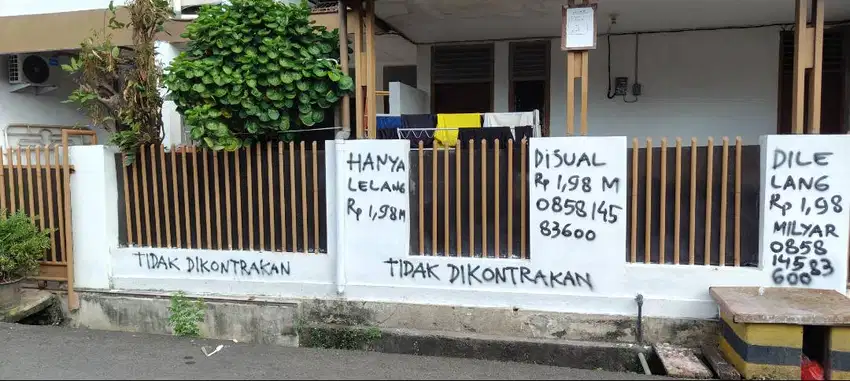 HANYA
LELANG
Rp 1,98 M
DiSUAL
Rp 1,98 M
0858 145
83600
DILE
LANG
Rp 1,98
MILYAR
0858
14583
600
TIDAK DIKONTRAKAN
TIDAK DIKONTRAKAN